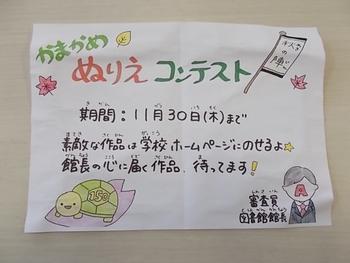 かまかめ
ぬりえ コンテスト
秋の陣
期間：11月30日(木)まで
素敵な作品は学校ホームページにのせるよ
館長の心に届く作品、待ってます!
150
審査員
図書館館長